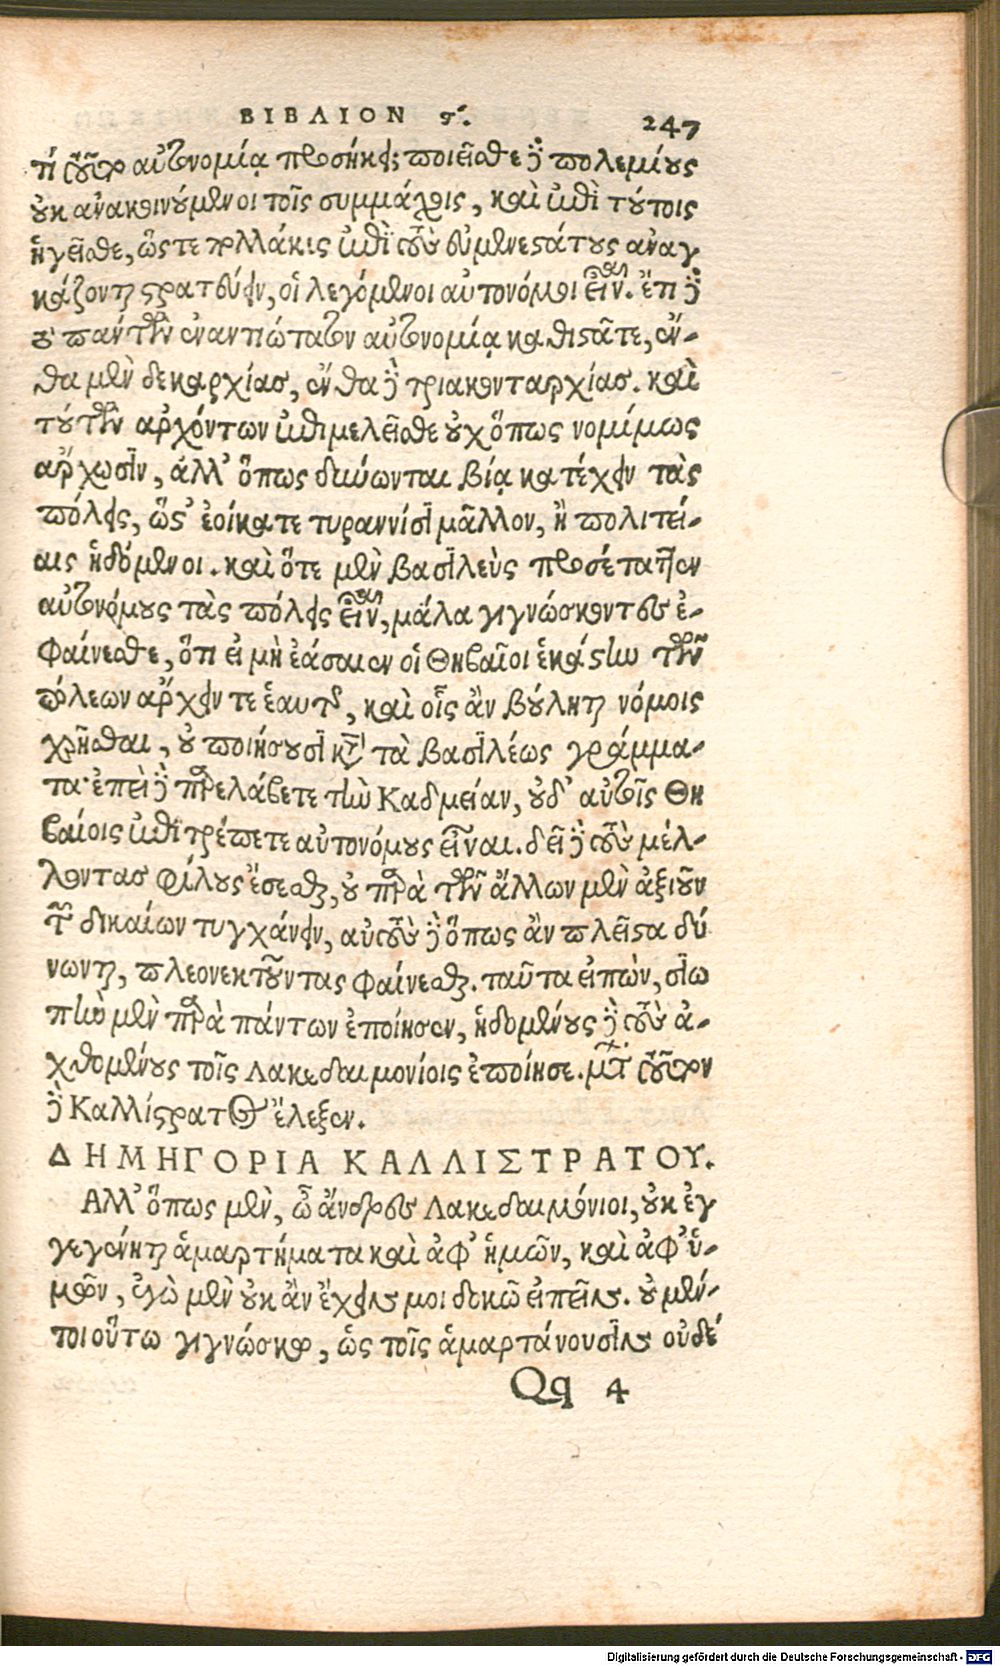 ΒΙΒΛΙΟΝ ϛ΄. 247
τί τοῦτο αὐτονομίᾳ προσήκει; ποιεῖσθε δὲ πολεμίους
οὐκ ἀνακοινούμενοι τοῖς συμμάχοις, καὶ ἐπὶ τούτοις
ἡγεῖσθε, ὥστε πολλάκις ἐπὶ τοὺς εὐμενεστάτους ἀναγ
κάζονται στρατεύειν, οἱ λεγόμενοι αὐτονόμοι εἶναι. ἔτι δὲ
τὸ πάντων ἐναντιώτατον αὐτονομίᾳ καθιστᾶτε, ἔν-
θα μὲν δεκαρχίας, ἔνθα δὲ τριακονταρχίας. καὶ
τούτων τῶν ἀρχόντων ἐπιμελεῖσθε οὐχ ὅπως νομίμως
ἄρχωσιν, ἀλλ' ὅπως δύνωνται βίᾳ κατέχειν τὰς
πόλεις, ὥστ' ἐοίκατε τυραννίσι μᾶλλον, ἢ πολιτεί-
αις ἡδόμενοι. καὶ ὅτε μὲν βασιλεὺς προσέταττεν
αὐτονόμους τὰς πόλεις εἶναι, μάλα γιγνώσκοντες ἐ-
φαίνεσθε, ὅτι εἰ μὴ ἐάσαιεν οἱ Θηβαῖοι ἑκάστην τῶν
πόλεων ἄρχειν τε ἑαυτῆς, καὶ οἷς ἂν βούληται νόμοις
χρῆσθαι, οὐ ποιήσουσι κατὰ τὰ βασιλέως γράμμα-
τα· ἐπεὶ δὲ παρελάβετε τὴν Καδμείαν, οὐδ' αὐτοῖς Θη
βαίοις ἐπιτρέπετε αὐτονόμους εἶναι. δεῖ δὲ τοὺς μέλ-
λοντας φίλους ἔσεσθαι, οὐ παρὰ τῶν ἄλλων μὲν ἀξιοῦν
τῶν δικαίων τυγχάνειν, αὐτοὺς δὲ ὅπως ἂν πλεῖστα δύ
νωνται, πλεονεκτοῦντας φαίνεσθαι. ταῦτα εἰπὼν, σιω
πὴν μὲν παρὰ πάντων ἐποίησεν, ἡδομένους δὲ τοὺς ἀ-
χθομένους τοῖς Λακεδαιμονίοις ἐποίησε. μετὰ τοῦτον
δὲ Καλλίστρατος ἔλεξεν.
ΔΗΜΗΓΟΡΙΑ ΚΑΛΛΙΣΤΡΑΤΟΥ.
Ἀλλ' ὅπως μὲν, ὦ ἄνδρες Λακεδαιμόνιοι, οὐκ ἐγ
γεγένηται ἁμαρτήματα καὶ ἀφ' ἡμῶν, καὶ ἀφ' ὑ-
μῶν, ἐγὼ μὲν οὐκ ἂν ἔχειν μοι δοκῶ εἰπεῖν. οὐ μέν-
τοι οὕτω γιγνώσκω, ὡς τοῖς ἁμαρτάνουσιν οὐδέ
Qq 4
Digitalisierung gefördert durch die Deutsche Forschungsgemeinschaft - DFG